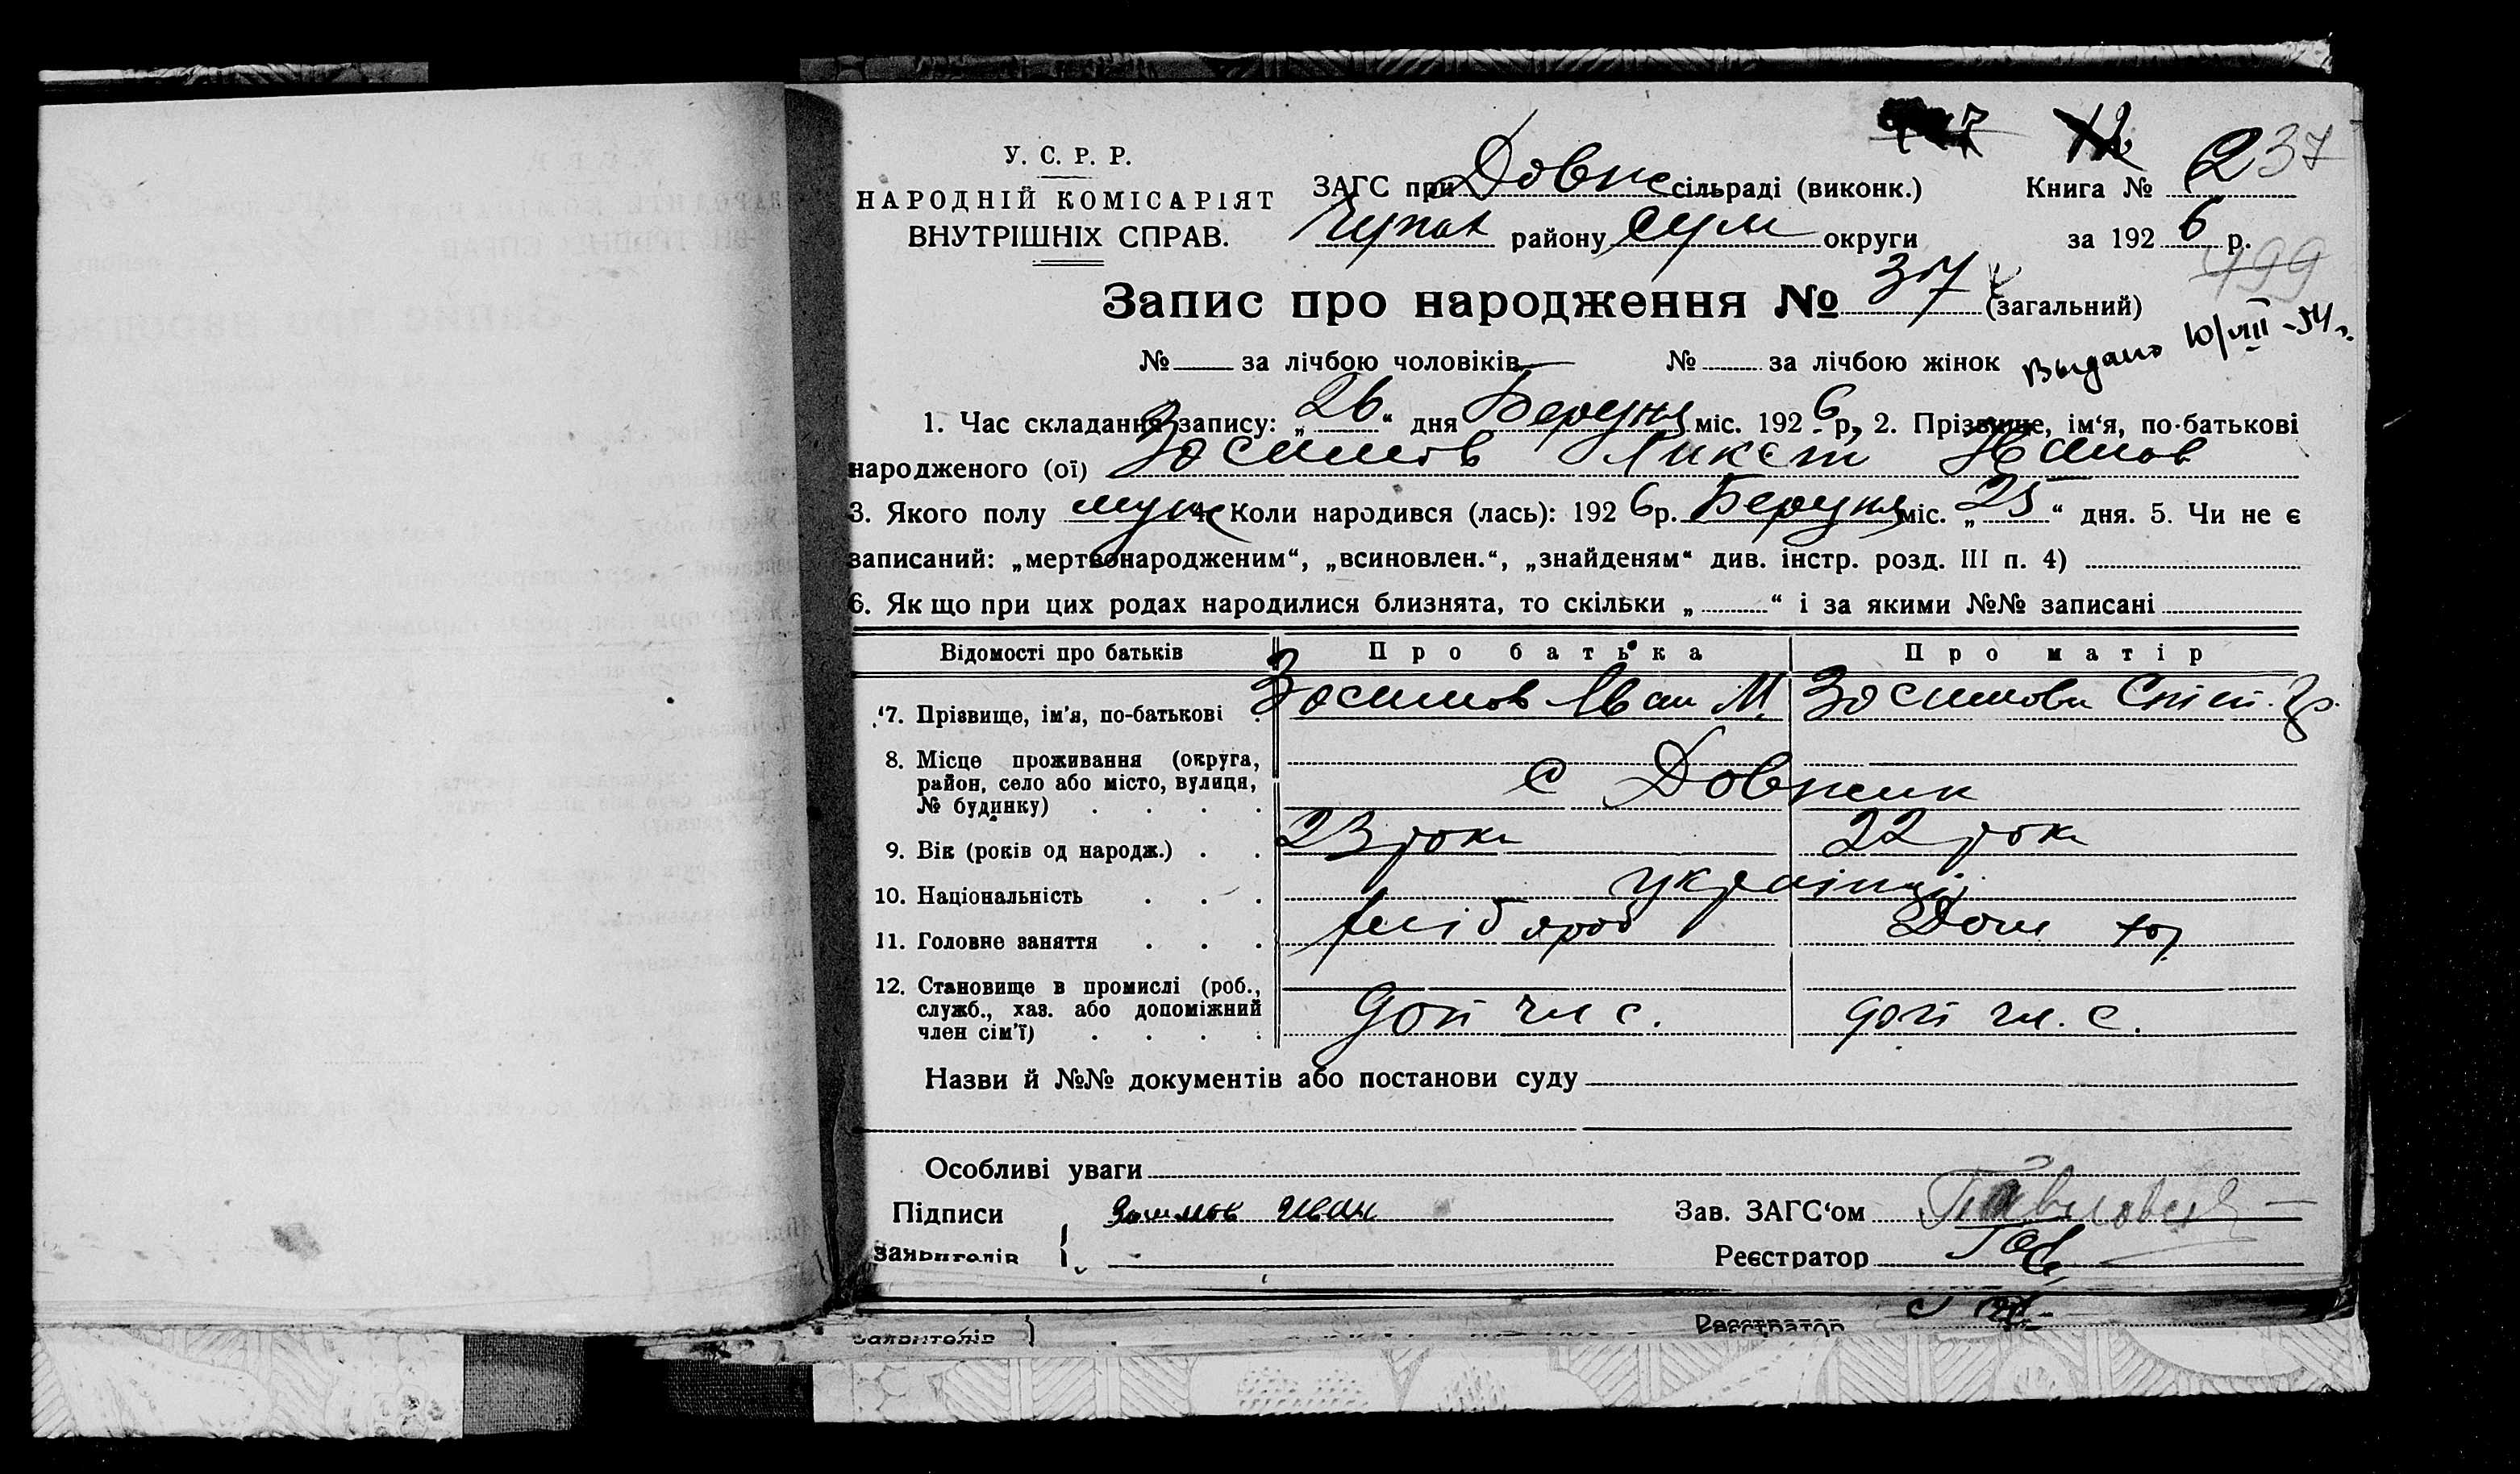 237
У. С. Р. Р.
НАРОДНІЙ КОМІСАРІЯТ
ВНУТРІШНІХ СПРАВ.
ЗАГС при Довж сільраді (виконк.) Книга № 2
району Сум округи за 1926 р.
499
Запис про народження № 37 (загальний)
№ за лічбою чоловіків № за лічбою жінок Выдано 10/VIII-54 г.
1. Час складання запису: „26“ дня Березня міс. 1926 р. 2. Прізвище, ім‘я, по-батькові
народженого (ої) Зосимов Іванов
3. Якого полу муж 4. Коли народився (лась): 1926 р. Березня міс. „25“ дня. 5. Чи не є
записаний: „мертвонародженим“, „всиновлен.“, „знайденям“ див. інстр. розд. III п. 4)
6. Якщо при цих родах народилися близнята, то скільки „ “ і за якими №№ записані
Відомості про батьків Про батька Про матір
7. Прізвище, ім'я, по-батькові Зосимов Иван М. Зосимова
8. Місце проживання (округа,
район, село або місто, вулиця,
№ будинку) с Довжик
9. Вік (років од народж.) 23 роки 22 роки
10. Національність українці
11. Головне заняття хлібороб Дом хоз
12. Становище в промислі (роб.,
служб., хаз. або допоміжний
член сім'ї) доп чл с. доп чл. с.
Назви й №№ документів або постанови суду
Особливі уваги
Підписи Зосимов Иван Зав. ЗАГС‘ом
заявителів Реєстратор
заявителів Реєстратор